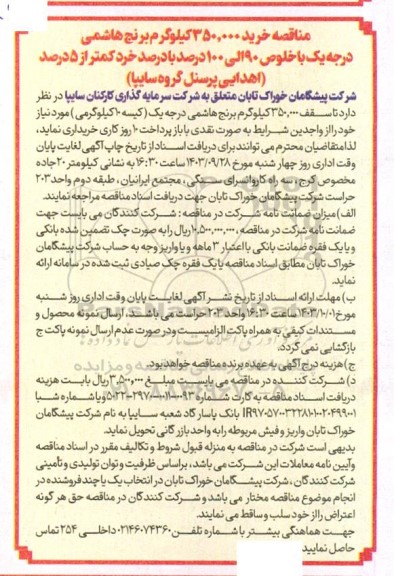 مناقصه خرید ۳۵۰,۰۰۰ کیلوگرم برنج هاشمی
درجه یک با خلوص ۹۰ الی ۱۰۰ درصد با درصد خرد کمتر از ۵ درصد
(اهدایی پرسنل گروه سایپا)
شرکت پیشگامان خوراک تابان متعلق به شرکت سرمایه گذاری کارکنان سایپا در نظر
دارد تا سقف ۳۵۰,۰۰۰ کیلوگرم برنج هاشمی درجه یک (کیسه ۱۰ کیلوگرمی) مورد نیاز
خود را از واجدین شرایط به صورت نقدی با باز پرداخت ۱۰ روز کاری خریداری نماید،
لذا متقاضیان محترم می توانند برای دریافت اسناد از تاریخ چاپ آگهی لغایت پایان
وقت اداری روز چهار شنبه مورخ ۱۴۰۳/۰۹/۲۸ ساعت ۱۶:۳۰ به نشانی کیلومتر ۲۰ جاده
مخصوص کرج، سه راه کاروانسرای سنگی، مجتمع ایرانیان، طبقه دوم واحد ۲۰۳
حراست شرکت پیشگامان خوراک تابان جهت دریافت اسناد مناقصه مراجعه نمایند.
الف) میزان ضمانت نامه شرکت در مناقصه: شرکت کنندگان می بایست جهت
ضمانت نامه شرکت در مناقصه، ۱۰,۵۰۰,۰۰۰,۰۰۰ ریال را به صورت چک تضمین شده بانکی
و یا یک فقره ضمانت بانکی با اعتبار ۳ ماهه و یا واریز وجه به حساب شرکت پیشگامان
خوراک تابان مطابق اسناد مناقصه یا یک فقره چک صیادی ثبت شده در سامانه ارائه
نماید.
ب) مهلت ارائه اسناد از تاریخ نشر آگهی لغایت پایان وقت اداری روز شنبه
مورخ ۱۴۰۳/۱۰/۰۱ ساعت ۱۶:۳۰ واحد ۲۰۳ حراست می باشد، ارسال نمونه محصول و
مستندات کیفی به همراه پاکت الزامیست و در صورت عدم ارسال نمونه پاکت ج
بازگشایی نمی گردد.
ج) هزینه درج آگهی به عهده برنده مناقصه خواهد بود.
د) شرکت کننده در مناقصه می بایست مبلغ ۳,۵۰۰,۰۰۰ ریال بابت هزینه
دریافت اسناد مناقصه به کارت شماره و یا شماره شبا
بانک پاسارگاد شعبه سایپا به نام شرکت پیشگامان
خوراک تابان واریز و فیش مربوطه را به واحد بازرگانی تحویل نماید.
بدیهی است شرکت در مناقصه به منزله قبول شروط و تکالیف مقرر در اسناد مناقصه
و آیین نامه معاملات این شرکت می باشد، براساس ظرفیت و توان تولیدی و تأمینی
شرکت کنندگان، شرکت پیشگامان خوراک تابان در انتخاب یک یا چند فروشنده در
انجام موضوع مناقصه مختار می باشد و شرکت کنندگان در مناقصه حق هر گونه
اعتراض را از خود سلب و ساقط می نمایند.
جهت هماهنگی بیشتر با شماره تلفن ۰۲۱۴۶۰۷۴۳۶۰ داخلی ۲۵۴ تماس
حاصل نمایید